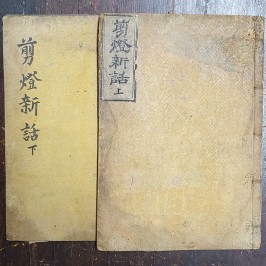 剪燈新話上
剪燈新話下